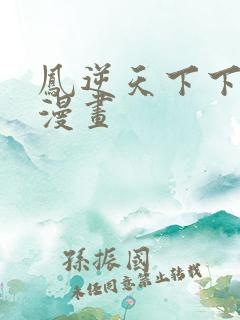 鳳逆天下下
漫畫
孫振國
未經同意禁止轉載